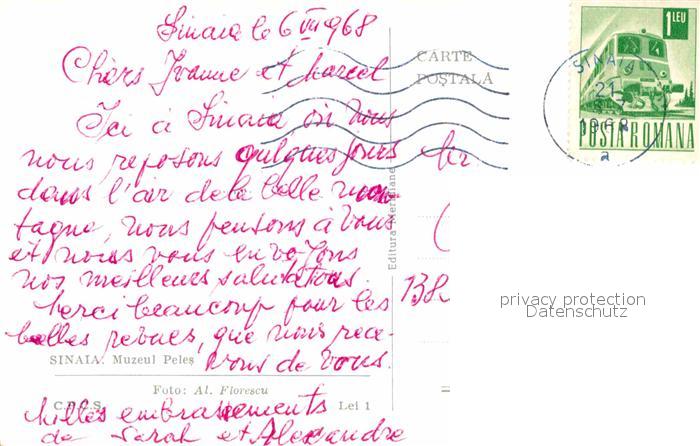 Sinaia le 6 VII 1968
Chers Ivonne et Marcel
Ici à Sinaia où nous
nous reposons quelques jours
dans l'air de la belle mon-
tagne, nous pensons à vous
et nous vous envoyons
nos meilleurs salutations.
Merci beaucoup pour les
belles revues, que nous rece-
vons de vous.
SINAIA: Muzeul Peleș
Foto: Al. Florescu
C.P.C.S. Lei 1
Milles embrassements
de Sarah et Alexandre
CARTE
POȘTALĂ
Editura Meridiane
1 LEU
SINAIA
21
1968
a
POSTA ROMANA
privacy protection
Datenschutz